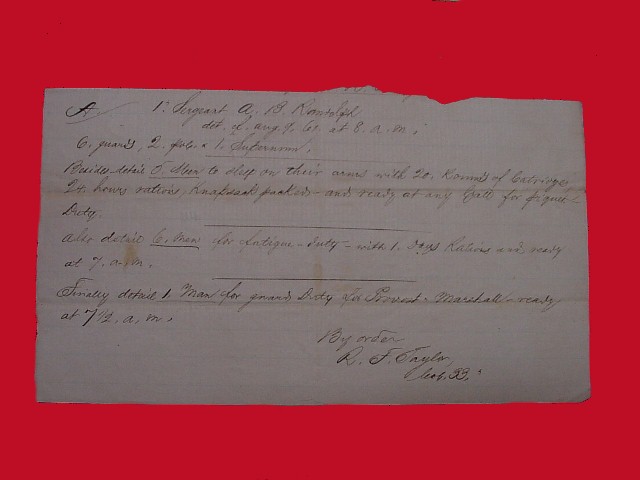 A. 1st Sergeant A. B. Randolph
det. f. Aug. 9. 61. at 8. a. m.
6. guards, 2. & 1. Supernum.
Besides detail 5. Men to sleep on their arms with 20. Rounds of Catridges
24. hours rations, Knapsack packed – and ready at any Call for piquet
Duty.
Also detail 6. Men for fatigue – duty – with 1. Days Rations and ready
at 7. a. m.
Finally detail 1. Man for guard Duty for Provost – Marshall – ready
at 7 1/2. a. m.
By order
R. F. Taylor
33.